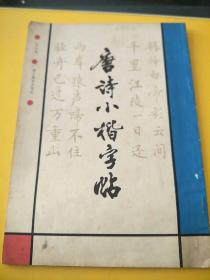 唐诗小楷字帖
朝辞白帝彩云间
千里江陵一日还
两岸猿声啼不住
轻舟已过万重山